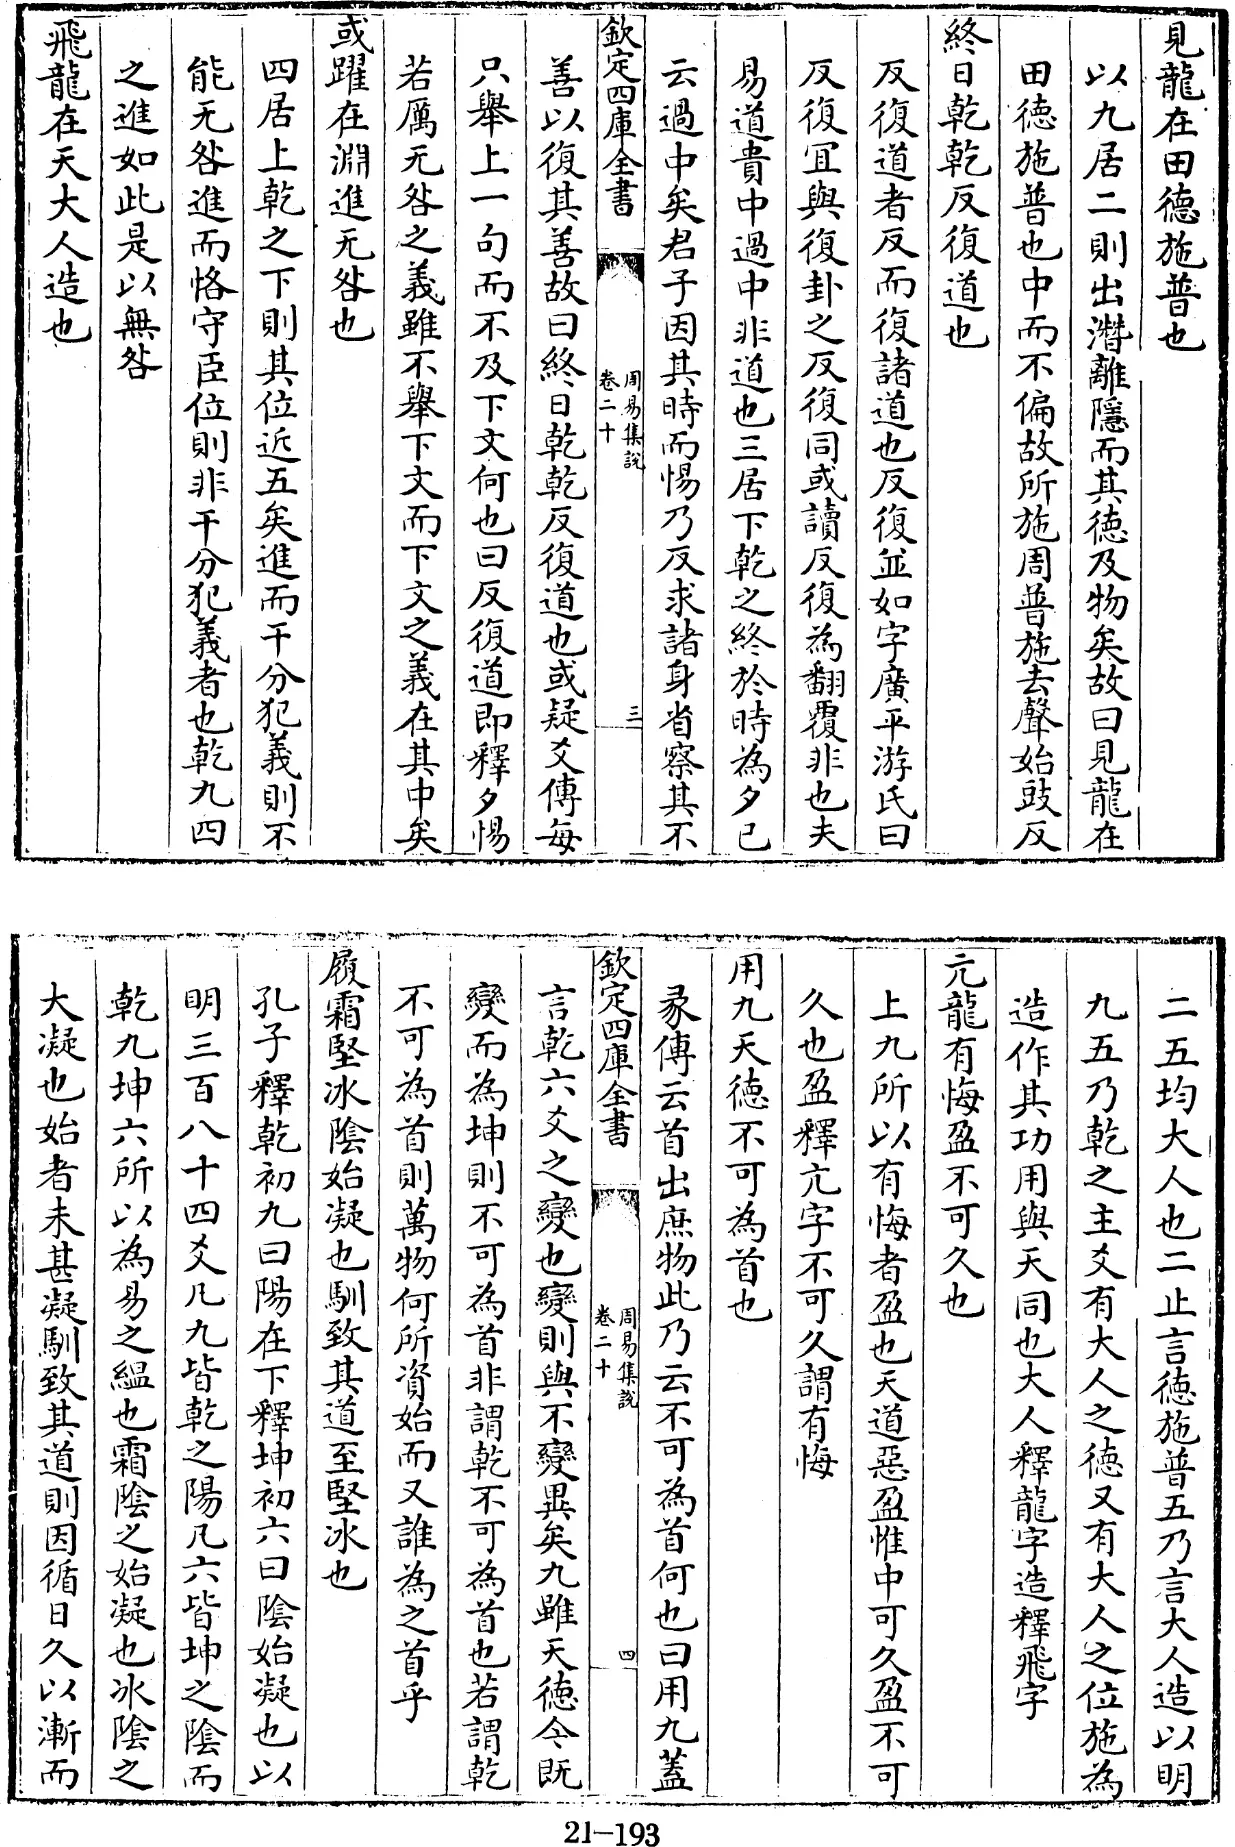 見龍在田德施普也
以九居二則出潛離隱而其德及物矣故曰見龍在
田德施普也中而不偏故所施周普施去聲始豉反
終日乾乾反復道也
反復道者反而復諸道也反復並如字廣平游氏曰
反復宜與復卦之反復同或讀反復為翻覆非也夫
易道貴中過中非道也三居下乾之終於時為夕已
云過中矣君子因其時而惕乃反求諸身省察其不
欽定四庫全書
周易集說
卷二十
三
善以復其善故曰終日乾乾反復道也或疑爻傳每
只舉上一句而不及下文何也曰反復道即釋夕惕
若厲无咎之義雖不舉下文而下文之義在其中矣
或躍在淵進无咎也
四居上乾之下則其位近五矣進而干分犯義則不
能无咎進而恪守臣位則非干分犯義者也乾九四
之進如此是以無咎
飛龍在天大人造也
二五均大人也二止言德施普五乃言大人造以明
九五乃乾之主爻有大人之德又有大人之位施為
造作其功用與天同也大人釋龍字造釋飛字
亢龍有悔盈不可久也
上九所以有悔者盈也天道惡盈惟中可久盈不可
久也盈釋亢字不可久謂有悔
用九天德不可為首也
彖傳云首出庶物此乃云不可為首何也曰用九蓋
欽定四庫全書
周易集說
卷二十
四
言乾六爻之變也變則與不變異矣九雖天德今既
變而為坤則不可為首非謂乾不可為首也若謂乾
不可為首則萬物何所資始而又誰為之首乎
履霜堅冰陰始凝也馴致其道至堅冰也
孔子釋乾初九曰陽在下釋坤初六曰陰始凝也以
明三百八十四爻凡九皆乾之陽凡六皆坤之陰而
乾九坤六所以為易之縕也霜陰之始凝也冰陰之
大凝也始者未甚凝馴致其道則因循日久以漸而
21-193